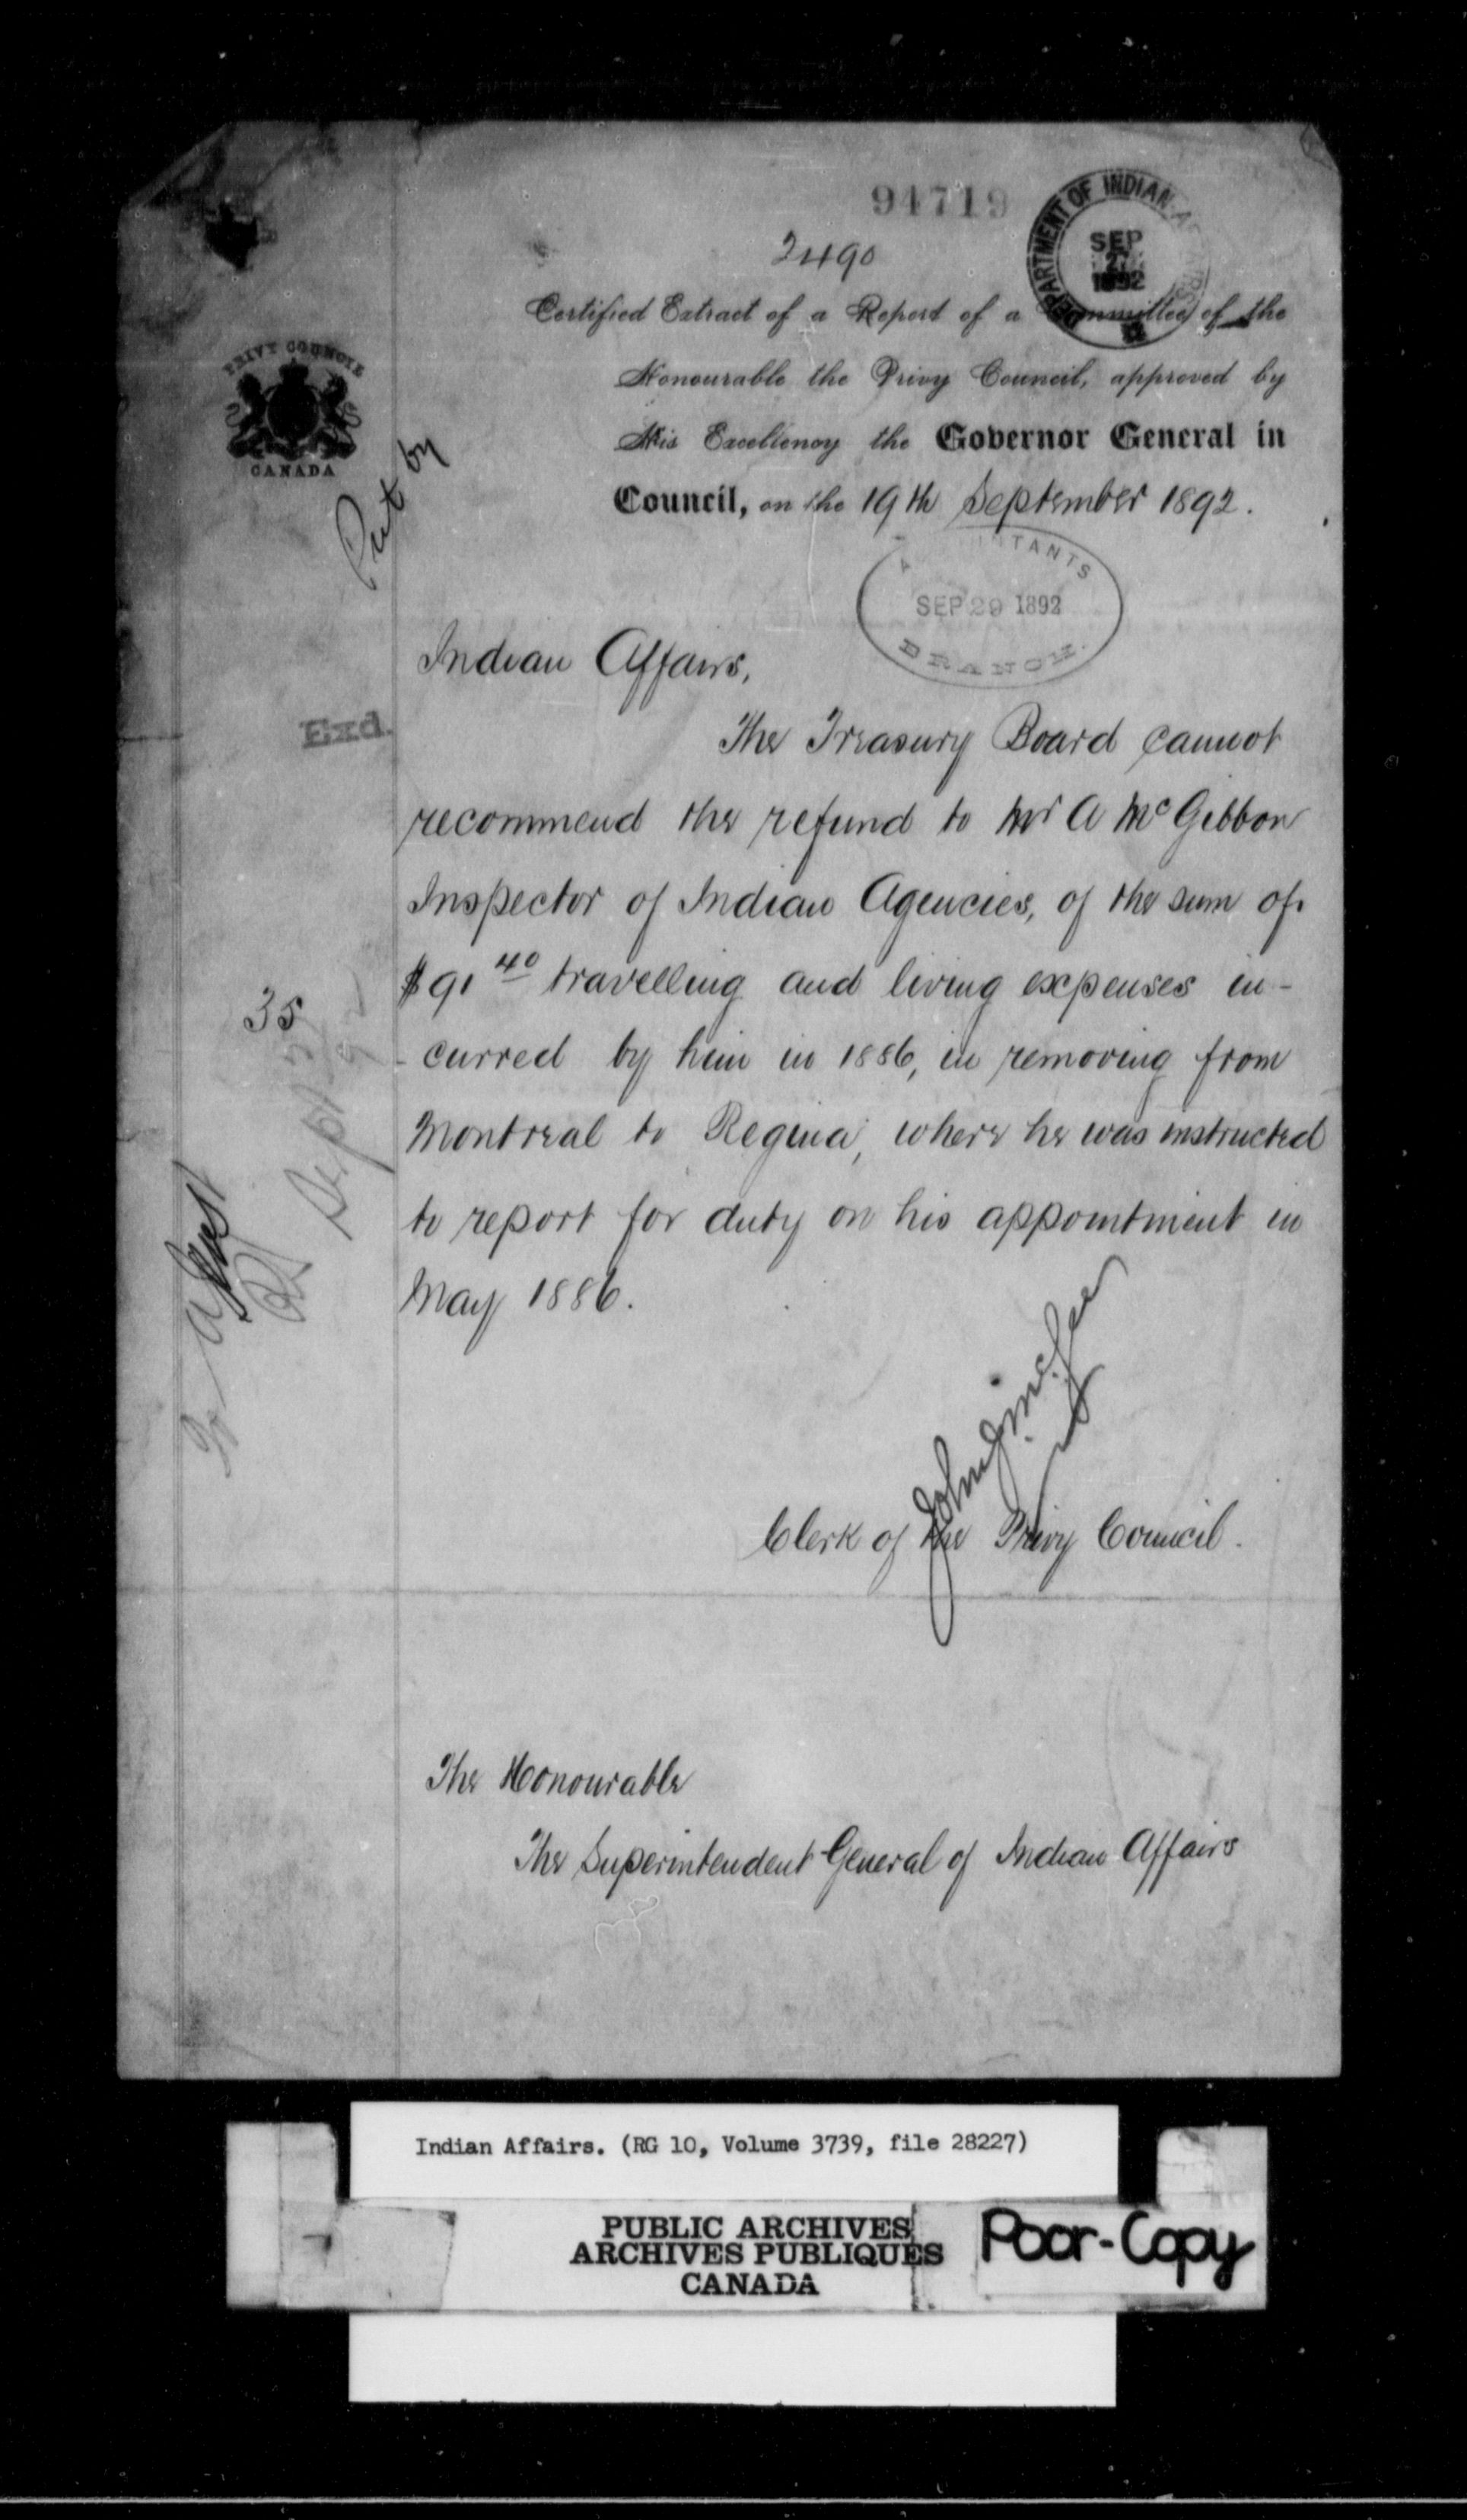 94719
DEPARTMENT OF INDIAN AFFAIRS
SEP
27
1892
2490
Certified Extract of a Report of a Committee of the
Honourable the Privy Council, approved by
His Excellency the Governor General in
Council, on the 19th September 1892.
PRIVY COUNCIL
CANADA
Put by
ACCOUNTANTS
SEP 29 1892
BRANCH.
Indian Affairs,
Exd.
The Treasury Board cannot
recommend the refund to Mr A McGibbon
Inspector of Indian Agencies, of the sum of
$91 40 travelling and living expenses in-
-curred by him in 1886, in removing from
Montreal to Regina, where he was instructed
to report for duty on his appointment in
May 1886.
35
Sept
John J. McGee
Clerk of the Privy Council.
The Honourable
The Superintendent General of Indian Affairs
Indian Affairs. (RG 10, Volume 3739, file 28227)
PUBLIC ARCHIVES
ARCHIVES PUBLIQUES
CANADA
Poor-Copy